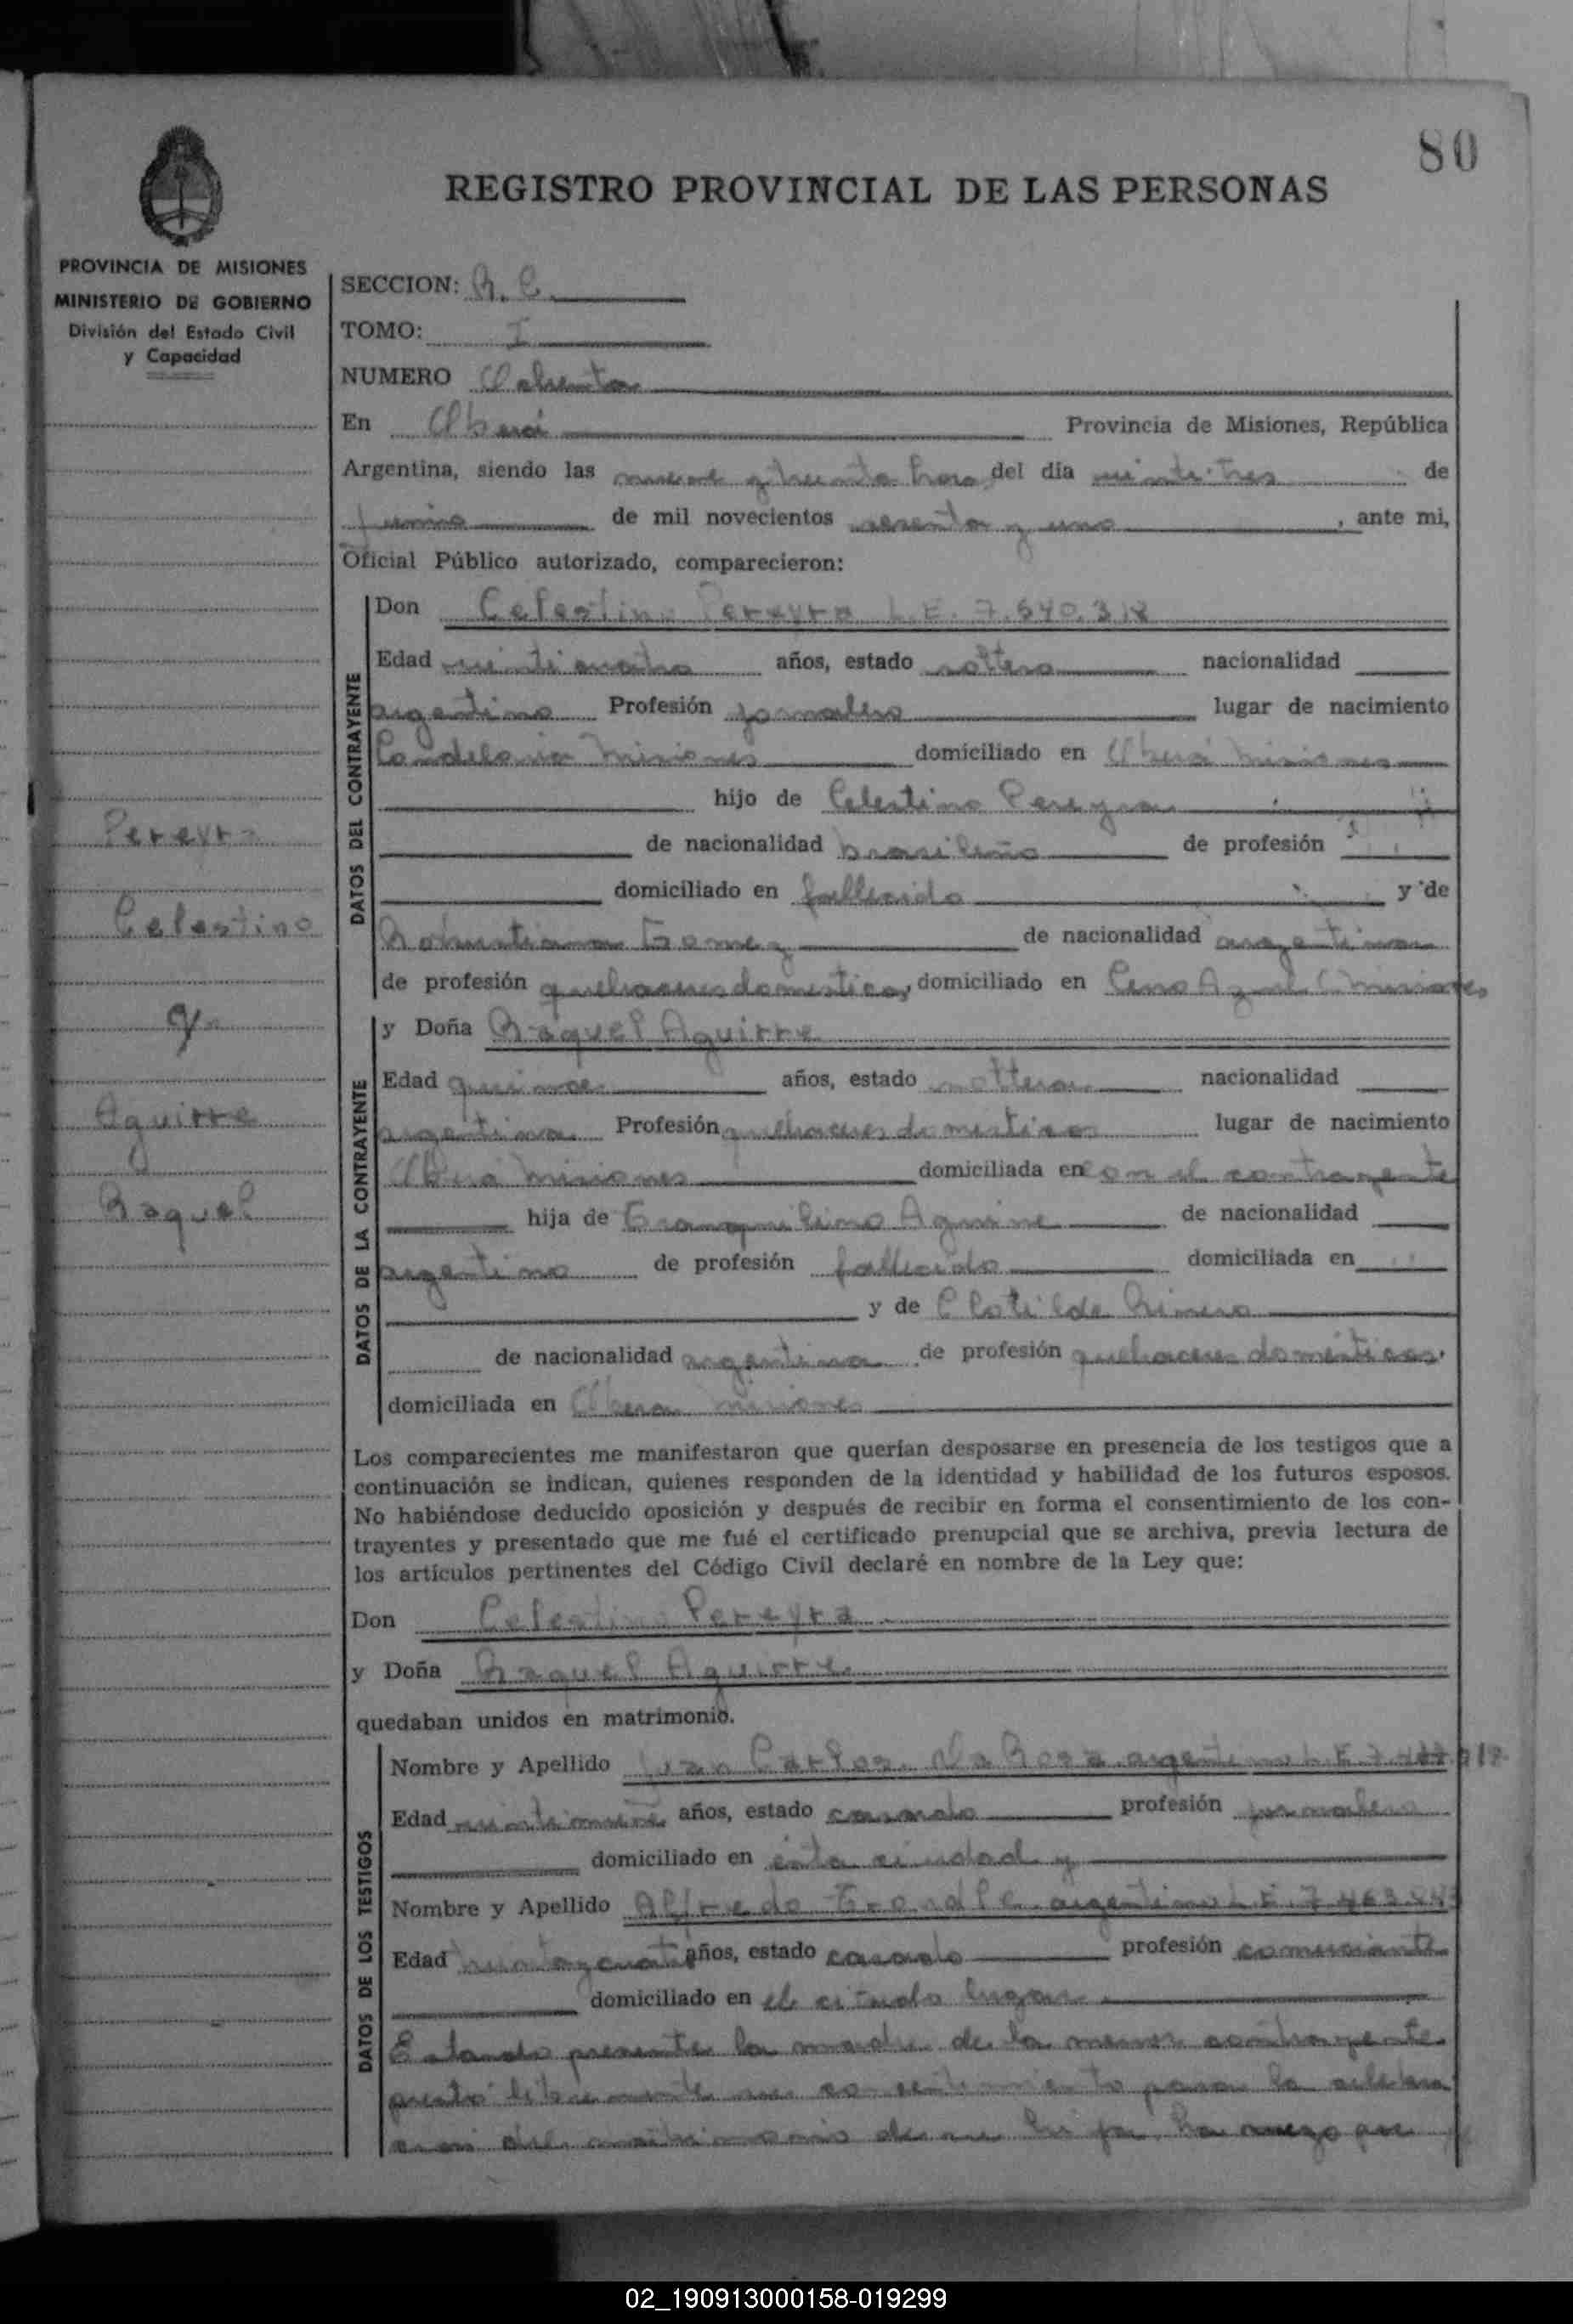 80
REGISTRO PROVINCIAL DE LAS PERSONAS
PROVINCIA DE MISIONES
MINISTERIO DE GOBIERNO
División del Estado Civil
y Capacidad
SECCION: R. C.
TOMO: I
NUMERO Ochenta
En Oberá Provincia de Misiones, República
Argentina, siendo las nueve y treinta horas del día veinte tres de
junio de mil novecientos sesenta y uno, ante mi,
Oficial Público autorizado, comparecieron:
DATOS DEL CONTRAYENTE
Don Celestino Pereyra L.E. 7.540.318
Edad veinticuatro años, estado soltero nacionalidad
argentino Profesión jornalero lugar de nacimiento
Candelaria Misiones domiciliado en Oberá Misiones
hijo de Celestino Pereyra
de nacionalidad brasileño de profesión
domiciliado en fallecido y de
Robustiana Gomez de nacionalidad argentina
de profesión quehaceres domesticos, domiciliado en Cerro Azul Misiones
Pereyra
Celestino
y
Aguirre
Raquel
DATOS DE LA CONTRAYENTE
y Doña Raquel Aguirre
Edad quince años, estado soltera nacionalidad
argentina Profesión quehaceres domesticos lugar de nacimiento
Oberá Misiones domiciliada en con el contrayente
hija de Tranquilino Aguirre de nacionalidad
argentino de profesión fallecido domiciliada en
y de Clotilde
de nacionalidad argentina de profesión quehaceres domésticos.
domiciliada en Oberá Misiones
Los comparecientes me manifestaron que querían desposarse en presencia de los testigos que a
continuación se indican, quienes responden de la identidad y habilidad de los futuros esposos.
No habiéndose deducido oposición y después de recibir en forma el consentimiento de los con-
trayentes y presentado que me fué el certificado prenupcial que se archiva, previa lectura de
los artículos pertinentes del Código Civil declaré en nombre de la Ley que:
Don Celestino Pereyra
y Doña Raquel Aguirre
quedaban unidos en matrimonio.
DATOS DE LOS TESTIGOS
Nombre y Apellido Juan Carlos Da Rosa argentino L.E.
Edad veintinueve años, estado casado profesión jornalero
domiciliado en ésta ciudad y
Nombre y Apellido Alfredo argentino L.E.
Edad treinta y cuatro años, estado casado profesión comerciante
domiciliado en el citado lugar
Estando presente la madre de la menor contrayente
prestó libremente su consentimiento para la celebra
cion del matrimonio de su hija,
02_190913000158-019299